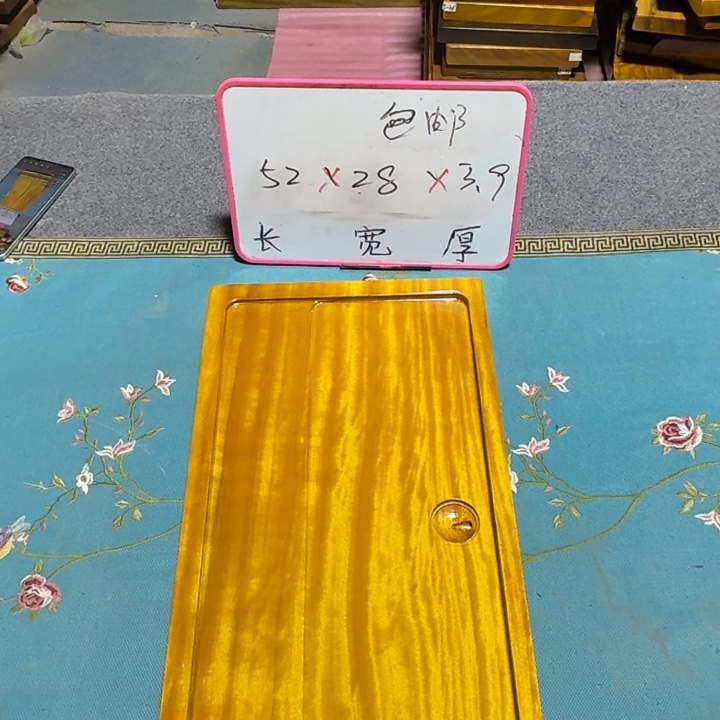 包邮
52 x 28 x 3.9
长 宽 厚